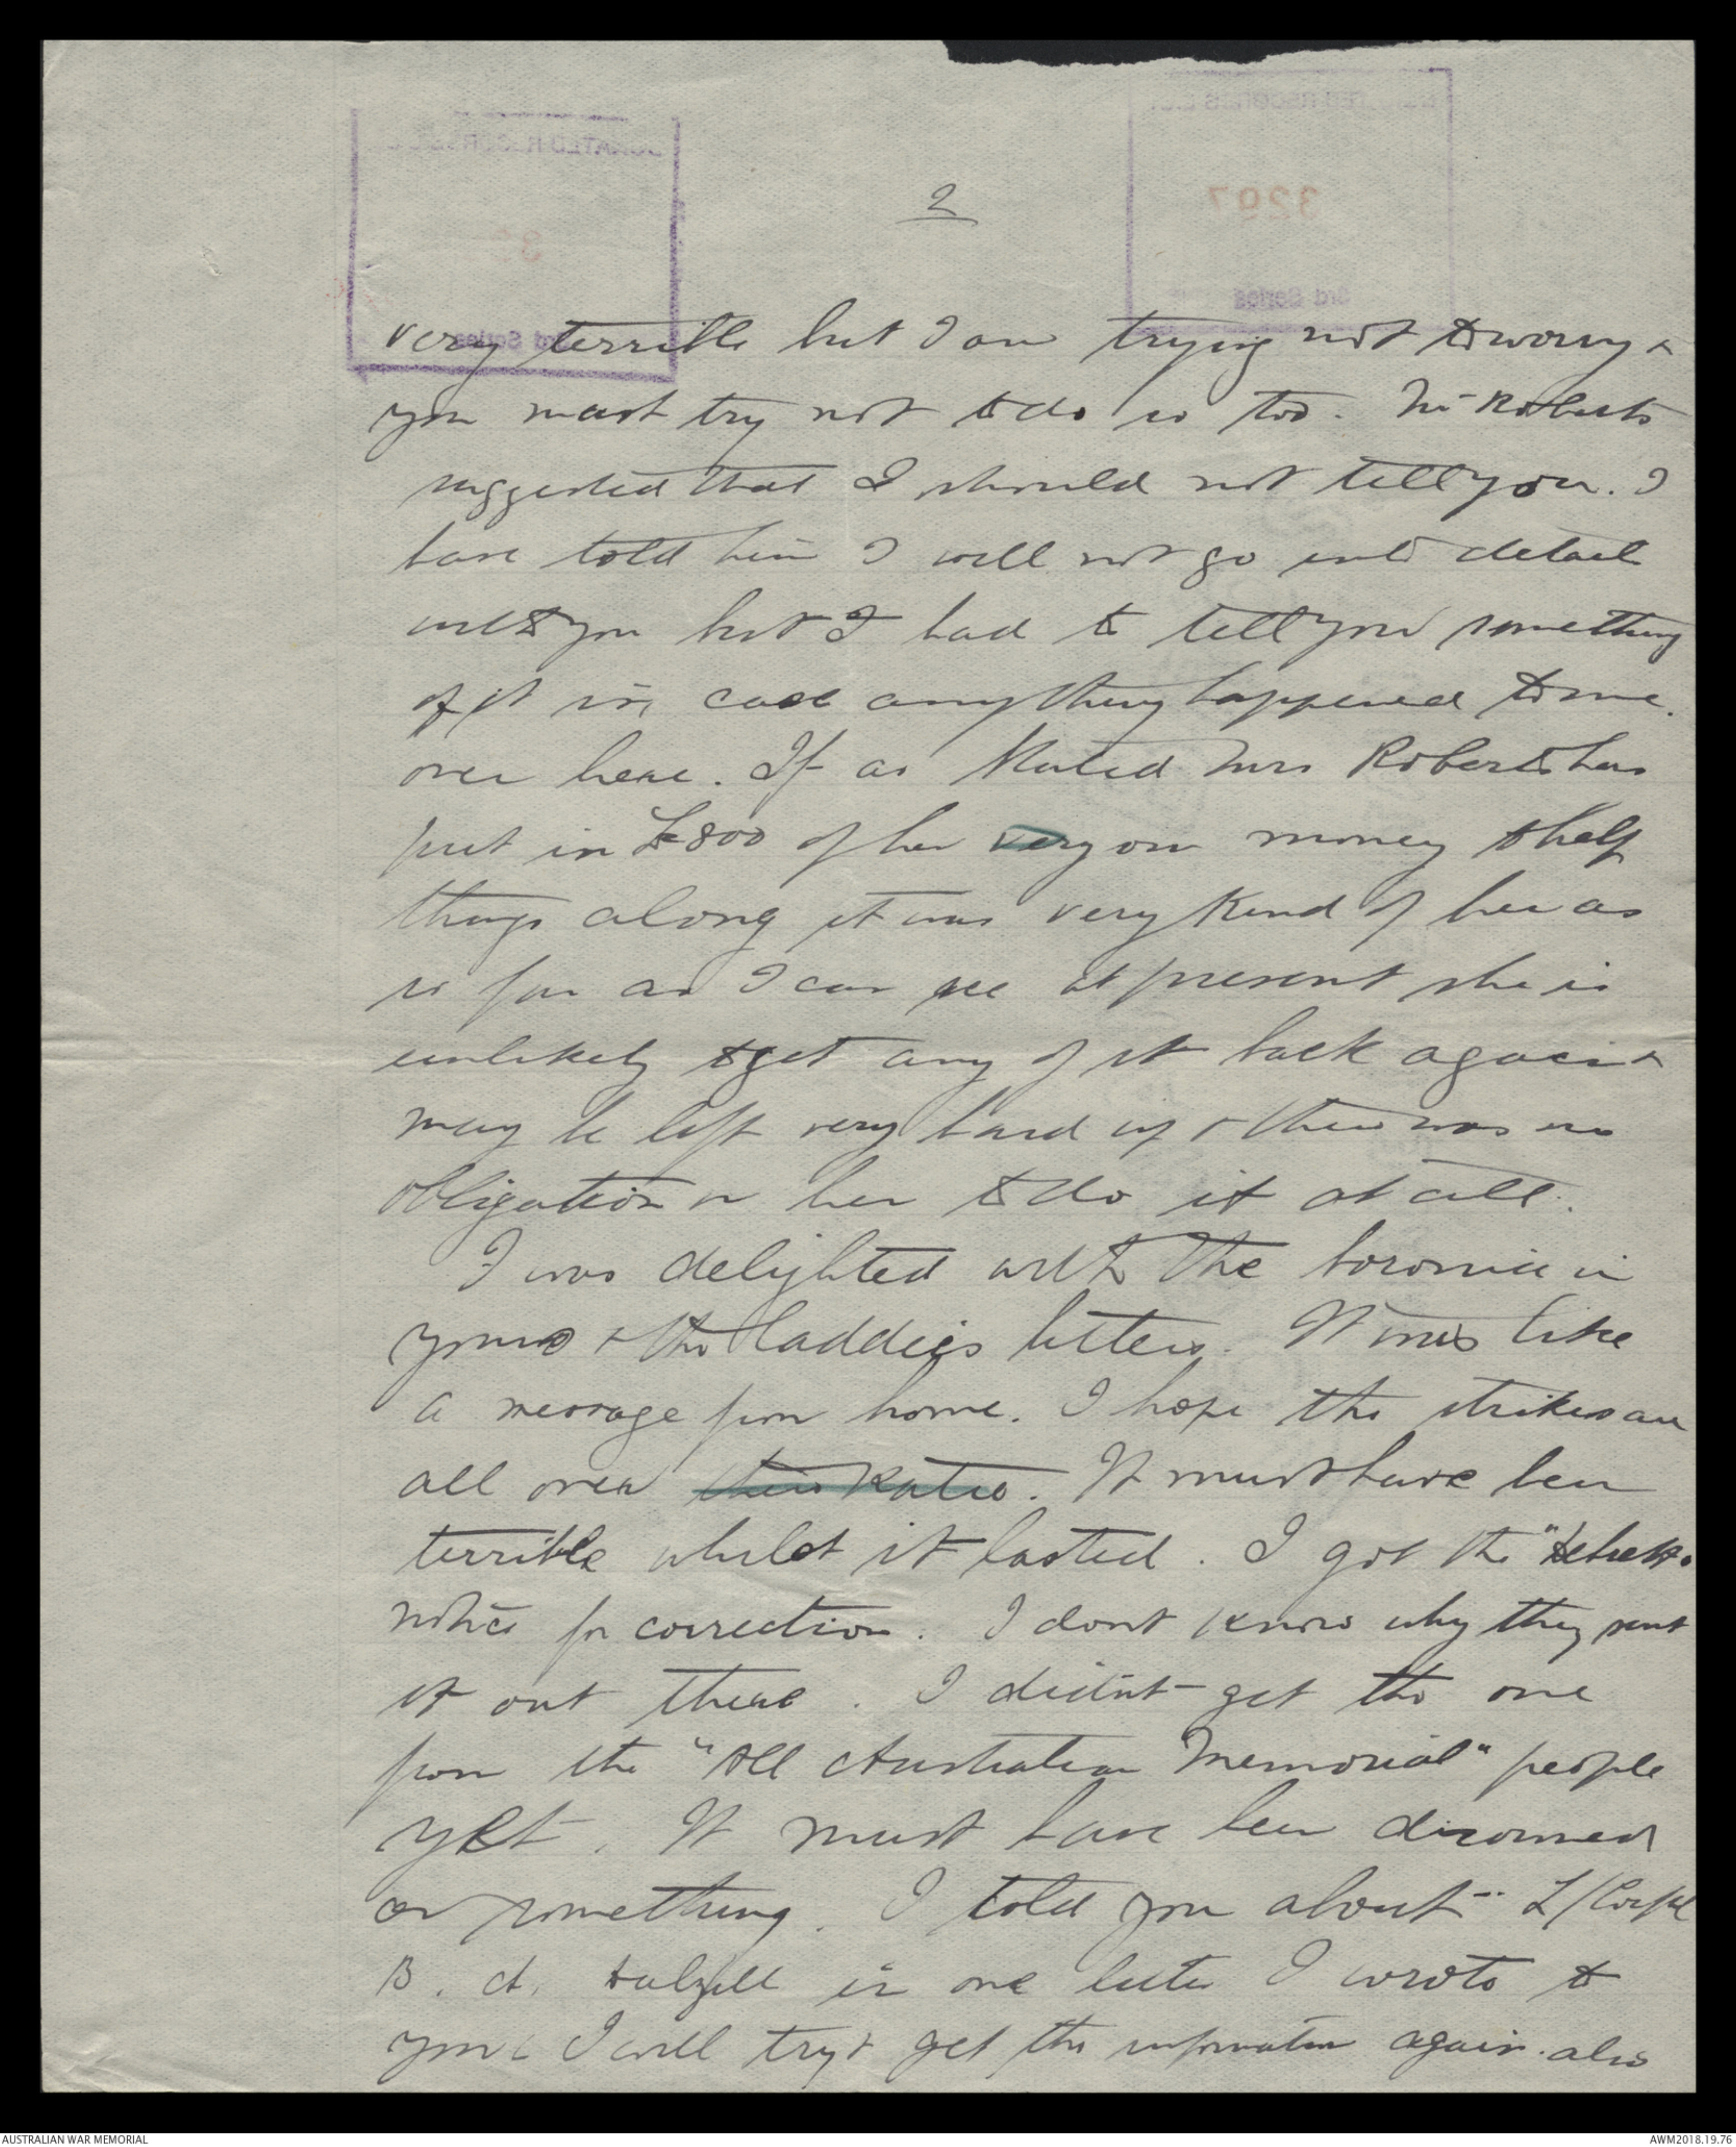 2
very terrible but I am trying not to worry &
you must try not to do so too. Mr Roberts
suggested that I should not tell you. I
have told him I will not go into detail
with you but I had to tell you something
of it in case anything happened to me
over here. If as stated Mrs Roberts has
put in £800 of her very own money to help
things along it was very kind of her as
so far as I can see at present she is
unlikely to get any of it back again &
may be left very hard up & there was no
obligation on her to do it at all.
I was delighted with the boronia in
yours & the laddies letters. It was like
a message from home. I hope the strikes are
all over there Katie. It must have been
terrible whilst it lasted. I got the
notice for correction. I dont know why they sent
it out there. I didn't get the one
from the "All Australian Memorial" people
yet. It must have been
or something. I told you about L/Corpl
B. A. Dalzell in one letter I wrote to
you. I will try & get the information again. also
3297
3rd Series
3rd Series
AUSTRALIAN WAR MEMORIAL
AWM2018.19.76